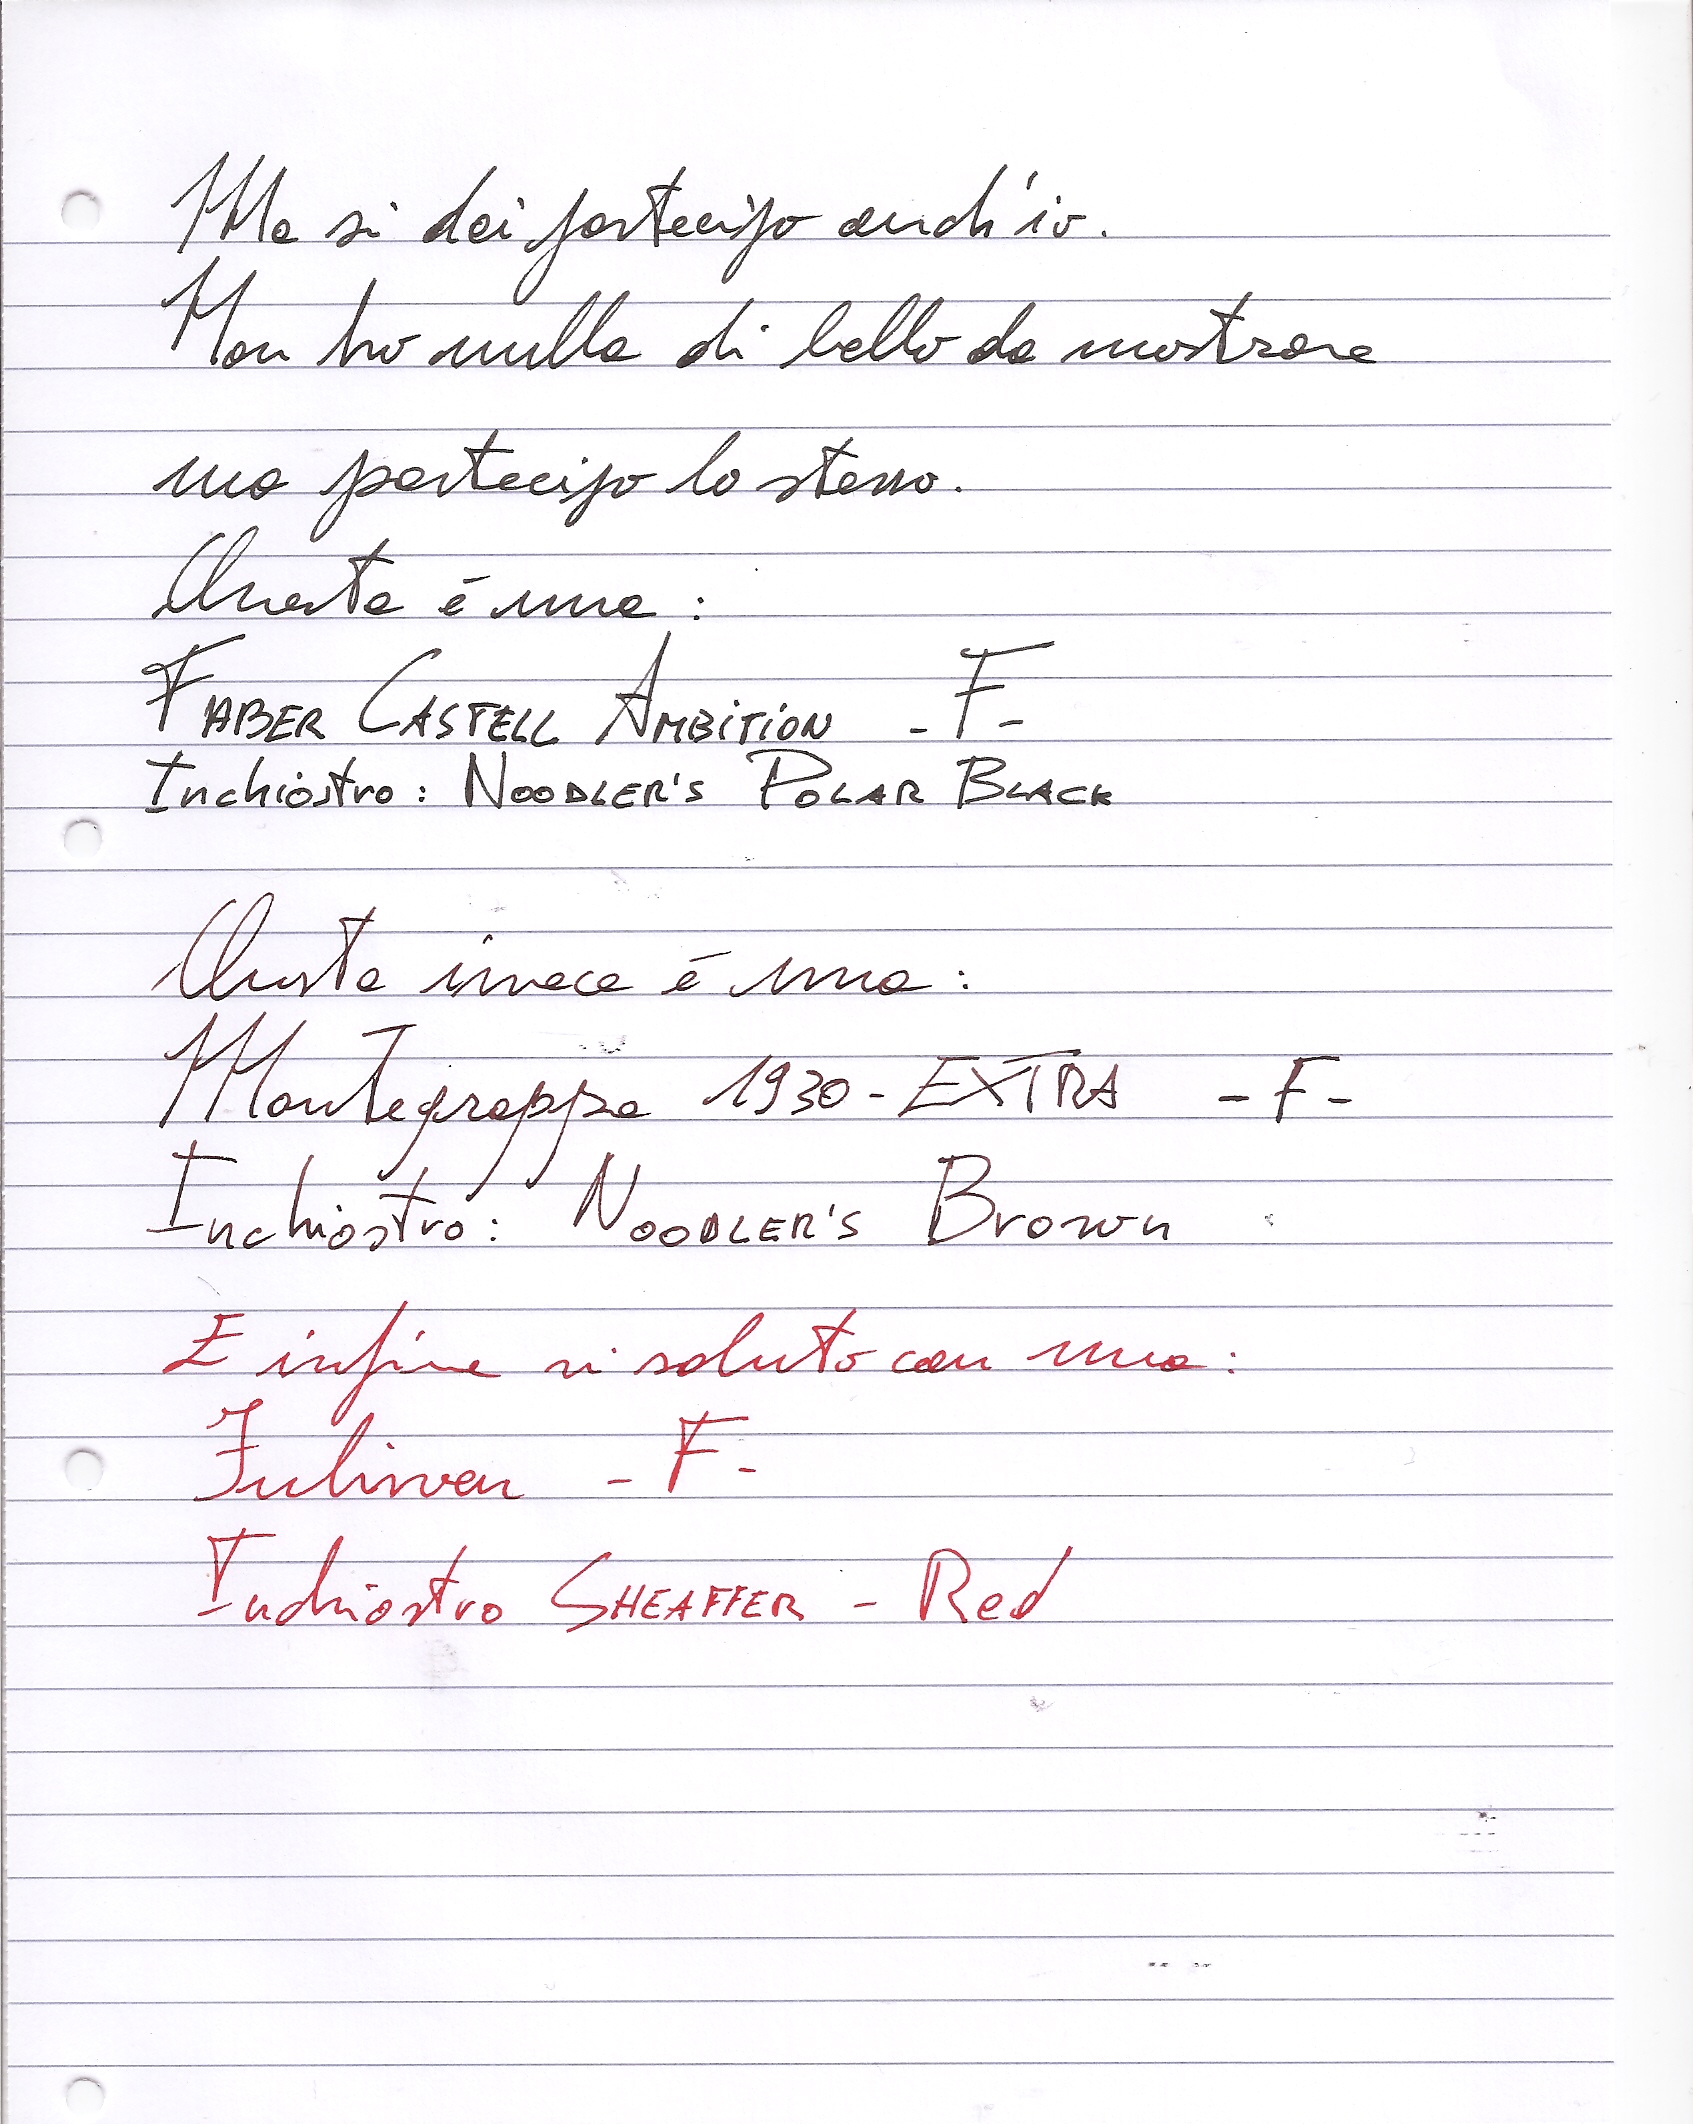 Ma si dai partecipo anch'io.
Non ho nulla di bello da mostrare
ma partecipo lo stesso.
Questa è una:
FABER CASTELL AMBITION -F-
Inchiostro: NOODLER'S POLAR BLACK
Questa invece è una:
Montegrappa 1930-EXTRA -F-
Inchiostro: NOODLER'S Brown
E infine vi saluto con una:
-F-
Inchiostro SHEAFFER - Red